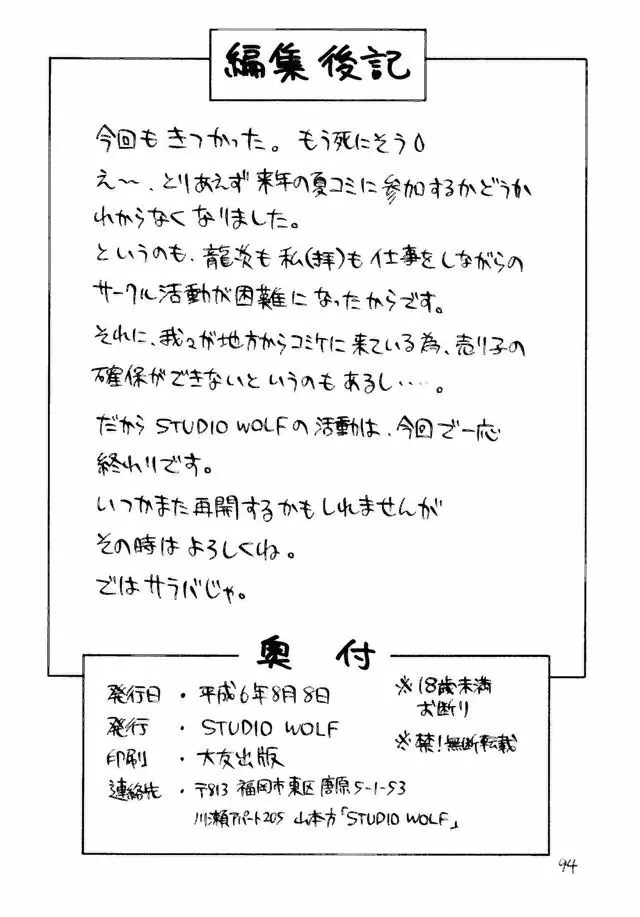 編集後記
今回もきつかった。もう死にそう
え〜、とりあえず来年の夏コミに参加するかどうか
わからなくなりました。
というのも、龍炎も私(拝)も仕事をしながらの
サークル活動が困難になったからです。
それに、我々が地方からコミケに来ている為、売り子の
確保ができないというのもあるし・・・・。
だから STUDIO WOLFの活動は、今回で一応
終わりです。
いつかまた再開するかもしれませんが
その時はよろしくね。
ではサラバじゃ。
奥付
発行日・平成6年8月8日
発行・STUDIO WOLF
印刷・大友出版
連絡先・〒813 福岡市東区唐原5-1-53
川瀬アパート205 山本方「STUDIO WOLF」
※18歳未満
お断り
※禁!無断転載
94